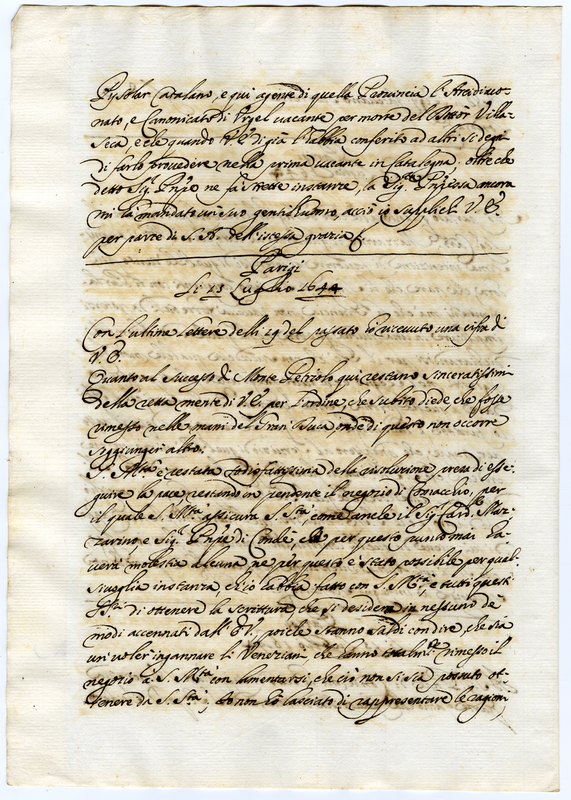 Catalano, e qui agente di quella Provincia l'Arcidiaco-
nato, e Canonicato di Urgel vacante per morte del Dottor Villa-
seca, e che quando V. E. di già l'habbia conferito ad altri si degni
di farlo provedere nella prima vacante in Catalogna, oltre che
detto Sig. Pnpe ne fa strette instanze, la Sig.ra Pnpessa ancora
mi ha mandato un suo gentilhuomo, acciò io supplichi V. E.
per parte di S. A. dell'istessa grazia
Parigi
Li 15 Luglio 1644
Con l'ultime lettere delli 19 del passato ho ricevuto una cifra di
V. E.
Quanto al successo di Monte qui restano sinceratissimi
della retta mente di V. E. per l'ordine, che subito diede, che fosse
rimesso nelle mani del Gran Duca, onde di questo non occorre
soggiunger altro.
S. M.tà è restata sodisfattissima della risoluzione presa di esse-
guire la pace restando in pendente il negozio di Comacchio, per
il quale S. M.tà assicura S. S.tà, come anche il Sig. Card.le Maz-
zarino, e Sig. Pnpe di Condé, che per questo punto mai ha-
verà molestia alcuna, ne per questo è stato possibile per qual-
sivoglia instanza, ch'io habbia fatto con S. M.tà, e tutti questi
di ottenere la scrittura che si desidera in nessuno de
modi accennati dall'E. V., poiche stanno saldi con dire, che sia
un voler ingannare li Veneziani, che hanno rimesso il
negozio a S. M.tà con lamentarsi, che ciò non si sia possuto ot-
tenere da S. S.tà, Io non ho lasciato di rappresentare le ragioni